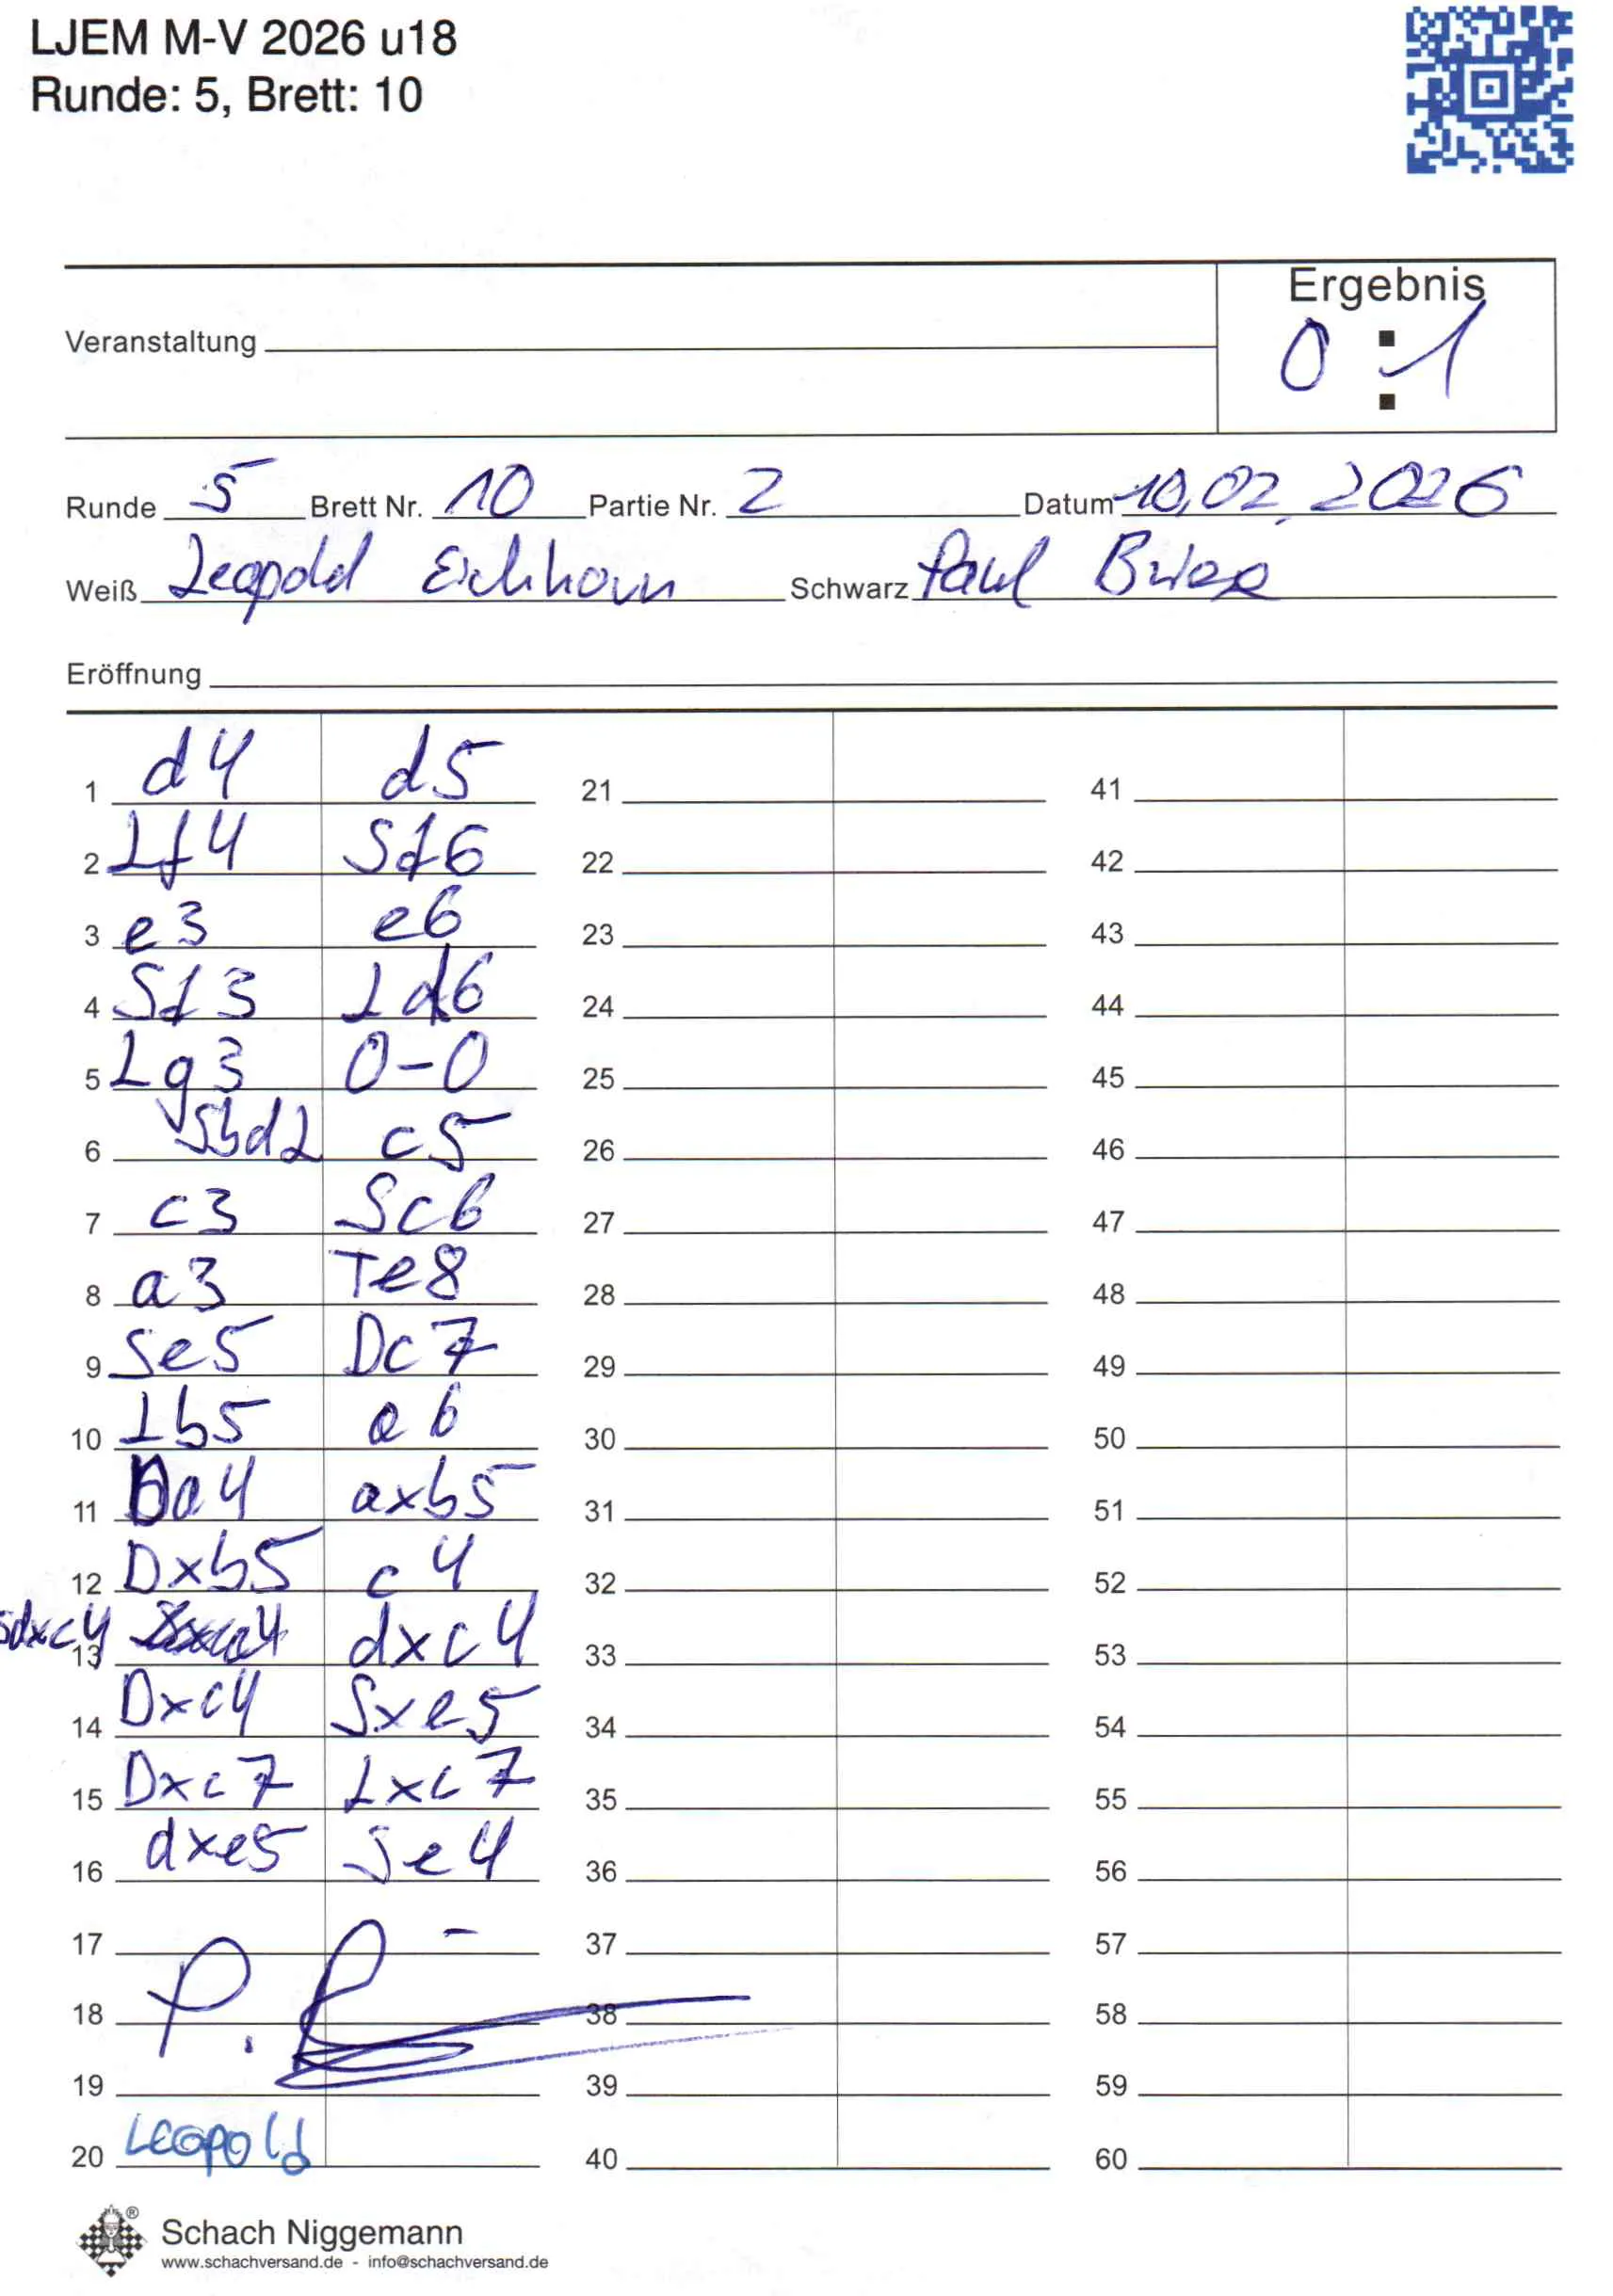 LJEM M-V 2026 u18
Runde: 5, Brett: 10
Ergebnis
Veranstaltung
0 : 1
Runde 5 Brett Nr. 10 Partie Nr. 2 Datum 10.02.2026
Weiß Leopold Eichhorn Schwarz Paul
Eröffnung
1 d4 d5 21 41
2 Lf4 Sf6 22 42
3 e3 e6 23 43
4 Sf3 Ld6 24 44
5 Lg3 0-0 25 45
6 Sbd2 c5 26 46
7 c3 Sc6 27 47
8 a3 Te8 28 48
9 Se5 Dc7 29 49
10 Lb5 a6 30 50
11 Da4 axb5 31 51
12 Dxb5 c4 32 52
13 Sdxc4 dxc4 33 53
14 Dxc4 Sxe5 34 54
15 Dxc7 Lxc7 35 55
16 dxe5 Se4 36 56
17 37 57
18 P. 38 58
19 39 59
20 Leopold 40 60
Schach Niggemann
www.schachversand.de - info@schachversand.de